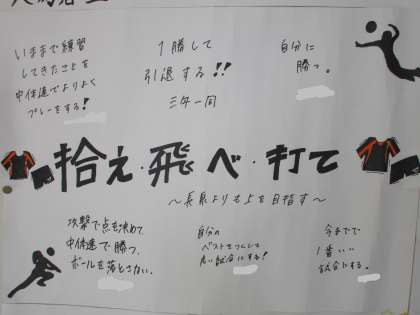 いままで練習
してきたことを
中体連でよりよく
プレーをする!
1勝して
引退する!!
三年一同
自分に
勝つ。
拾え・飛べ・打て
～長泉よりも上を目指す～
攻撃で点も決めて、
中体連で勝つ。
ボールを落とさない。
自分の
ベストをつくして
良い試合にする!
今までで
1番いい
試合にする。